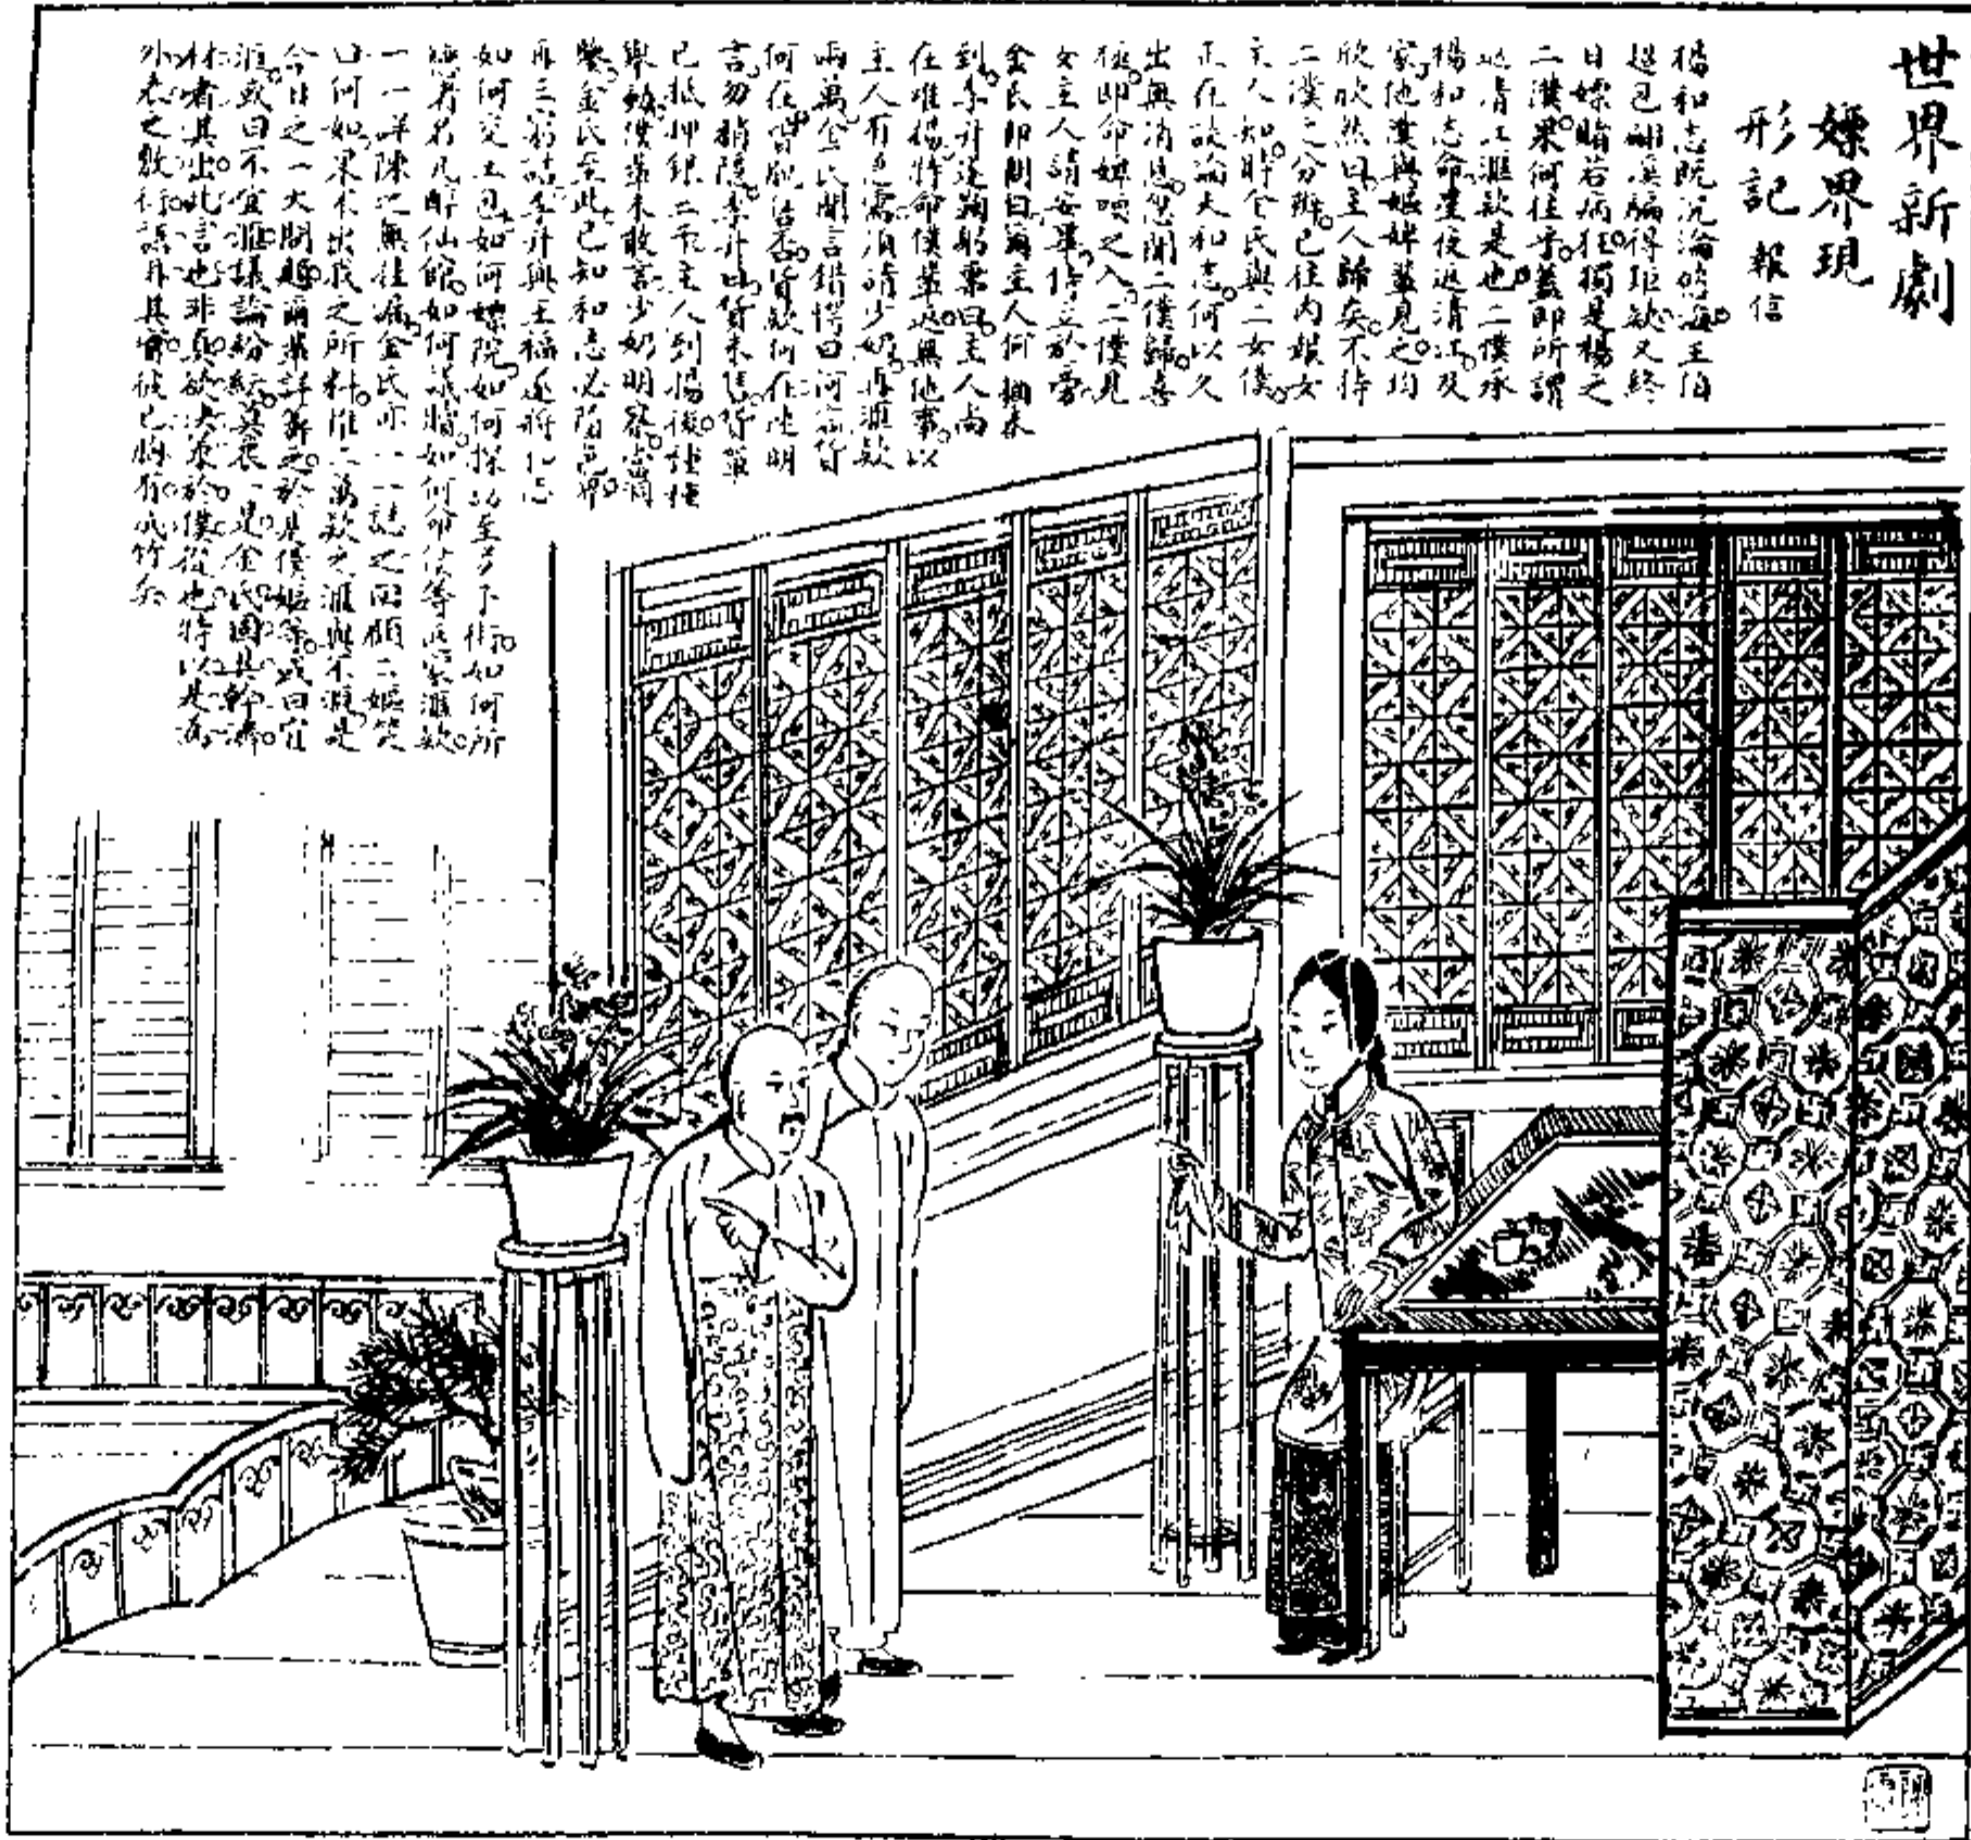 世界新劇
嫖界現
形記 報信
楊和志既沉淪慾海王伯
超已訛詐騙得鉅欵又終
日嫖賭若病狂獨是楊之
二僕果何往乎蓋即所謂
返清江滙欵是也二僕承
楊和志命星夜返清江及
家他僕與嫗婢輩見之均
欣欣然曰主人歸矣不待
二僕之分辯已往內報女
主人知時金氏與二女僕
正在談論夫和志何以久
出無消息忽聞二僕歸喜
極即命婢喚之入二僕見
女主人請安畢侍立於旁
金氏即問曰爾主人何獨未
到李升遂鞠躬稟曰主人尚
在維揚特命僕輩返無他事以
主人有急需須請少奶再滙欵
兩萬金氏聞言錯愕曰何需貨
何在貨脫沽否貨欵何在速明
言勿稍隱李升曰貨未售貨單
已抵押銀二千主人到揚後種種
舉動僕輩未敢言少奶明察當
鑒金氏至此已知和志必陷邑界
再三窮詰李升與王福遂將和志
如何交王邑如何嫖院如何探訪至多下街如何所
戀者名凡醉仙館如何議賭如何命伊等返家滙欵
一一詳陳之無往漏金氏亦一一誌之回顧二嫗笑
曰何如果不出我之所料惟二萬欵之滙與不滙是
今日之一大問題爾輩詳籌之於是僕嫗等或曰宜
滙或曰不宜滙議論紛紜莫衷一是金氏固具幹濟
材者其出此言也非真欲決策於僕從也特以是為
外表之敷衍語耳其實彼已胸有成竹矣